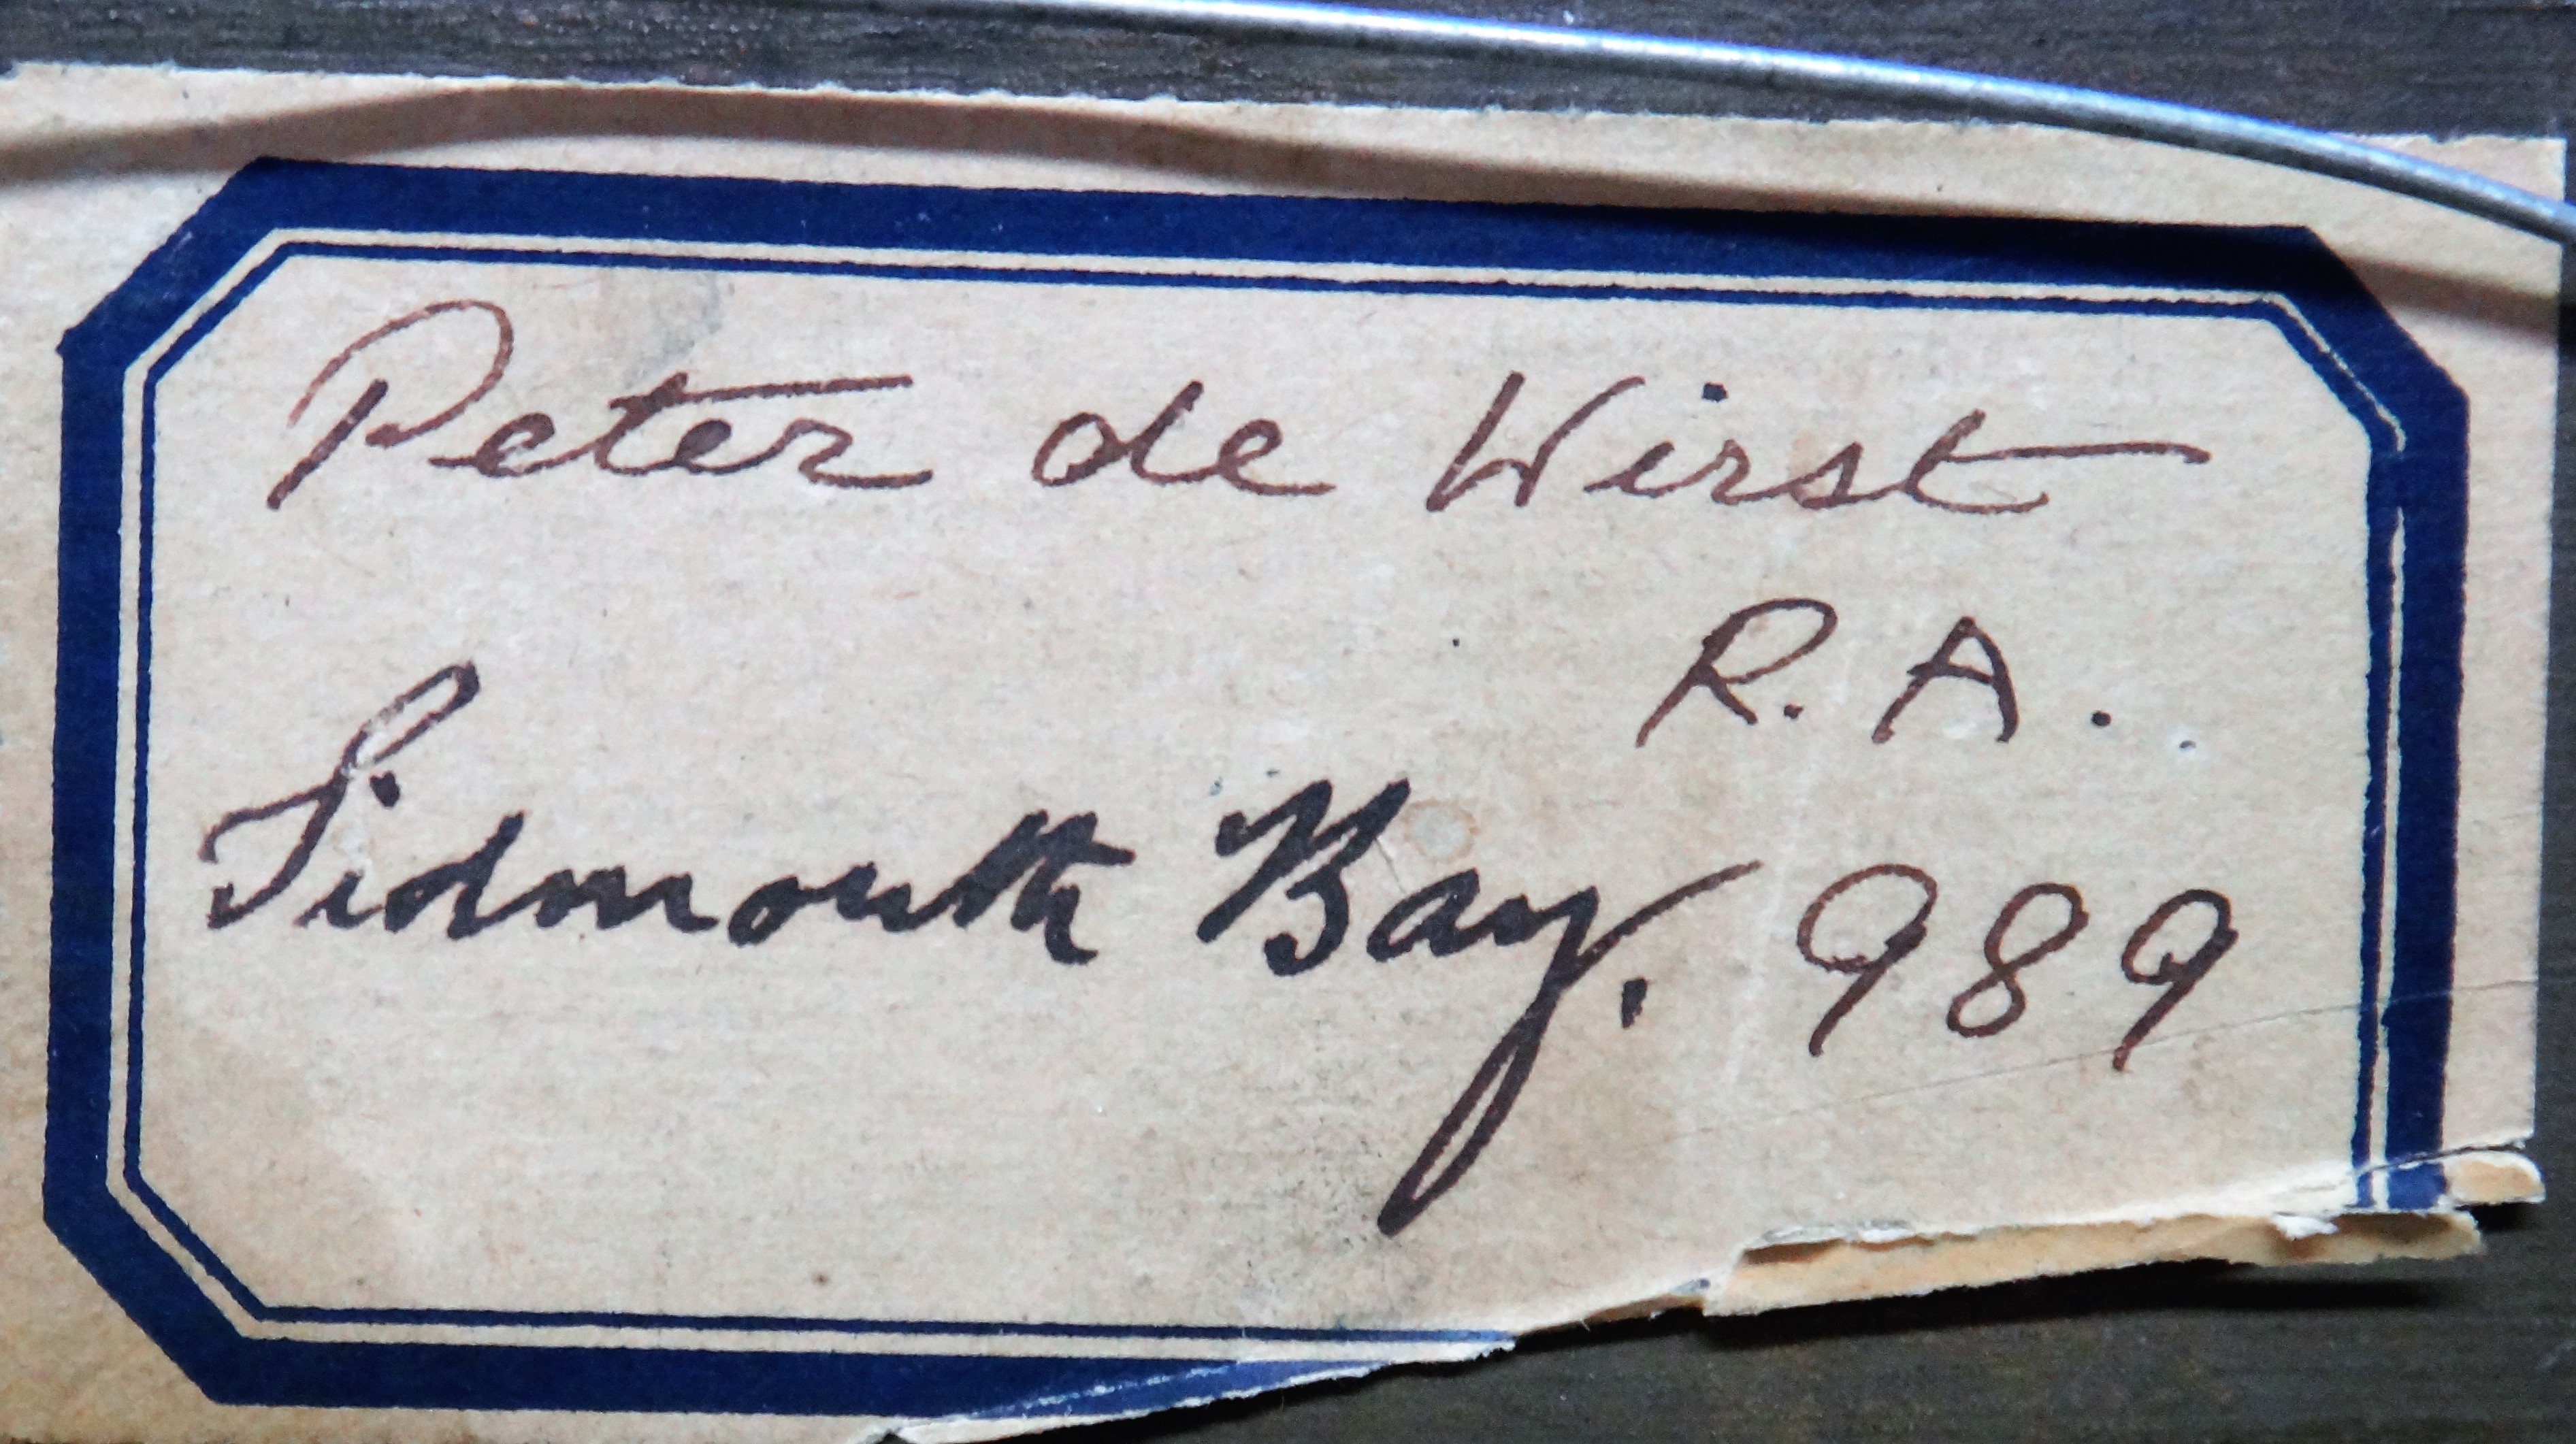 Peter de Wirst
R. A.
Sidmouth Bay. 989